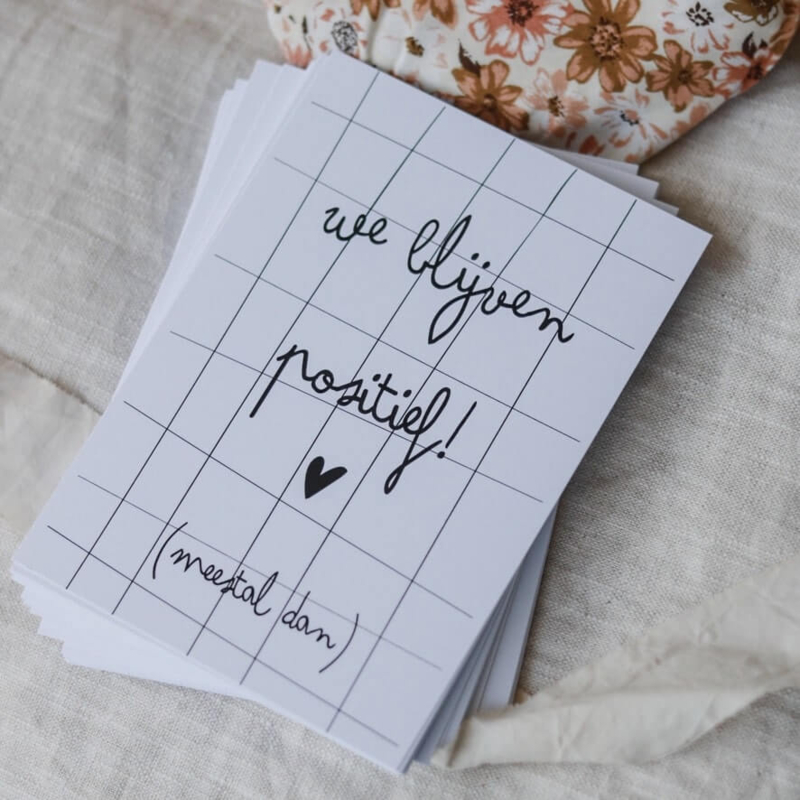 we blijven
positief!
(meestal dan)